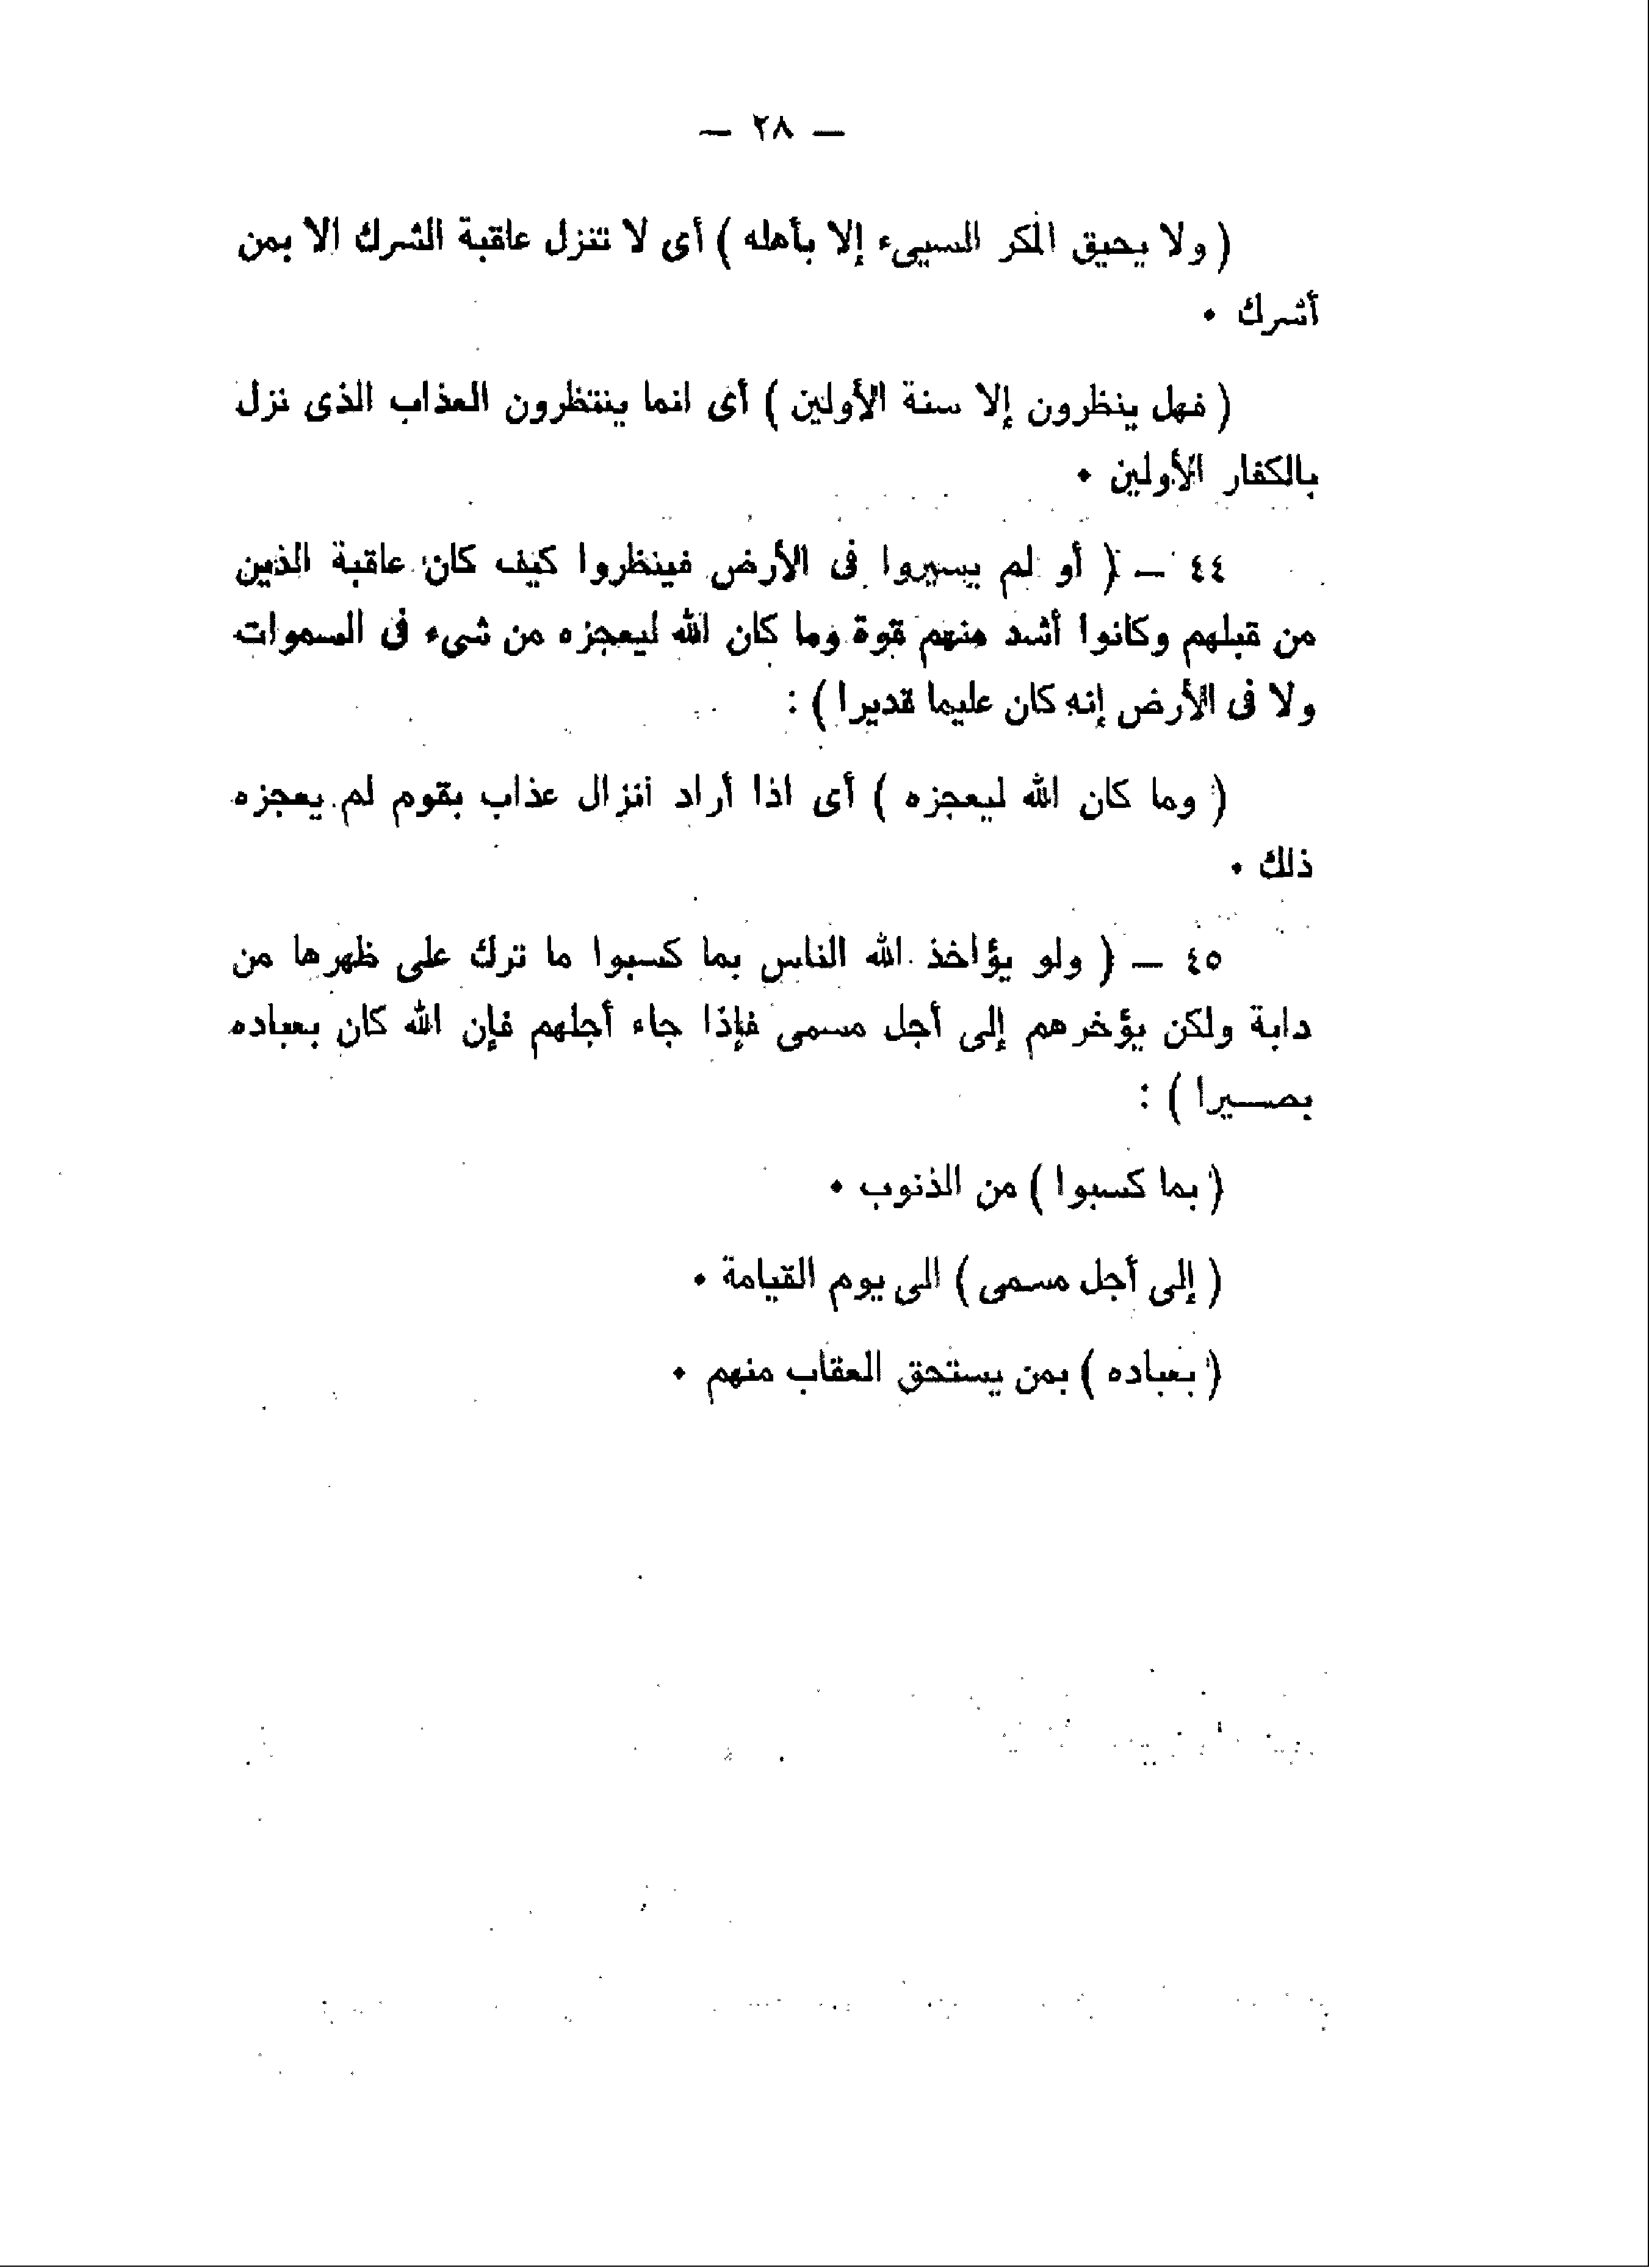 — ٢٨ —
( ولا يحيق المكر السيىء إلا بأهله ) أى لا تنزل عاقبة الشرك الا بمن
أشرك ٠
( فهل ينظرون إلا سنة الأولين ) أى انما ينتظرون العذاب الذى نزل
بالكفار الأولين ٠
٤٤ — ( أو لم يسيروا فى الأرض فينظروا كيف كان عاقبة الذين
من قبلهم وكانوا أشد منهم قوة وما كان الله ليعجزه من شىء فى السموات
ولا فى الأرض إنه كان عليما قديرا ) :
( وما كان الله ليعجزه ) أى اذا أراد انزال عذاب بقوم لم يعجزه
ذلك ٠
٤٥ — ( ولو يؤاخذ الله الناس بما كسبوا ما ترك على ظهرها من
دابة ولكن يؤخرهم إلى أجل مسمى فإذا جاء أجلهم فإن الله كان بعباده
بصـــيرا ) :
( بما كسبوا ) من الذنوب ٠
( إلى أجل مسمى ) الى يوم القيامة ٠
( بعباده ) بمن يستحق العقاب منهم ٠